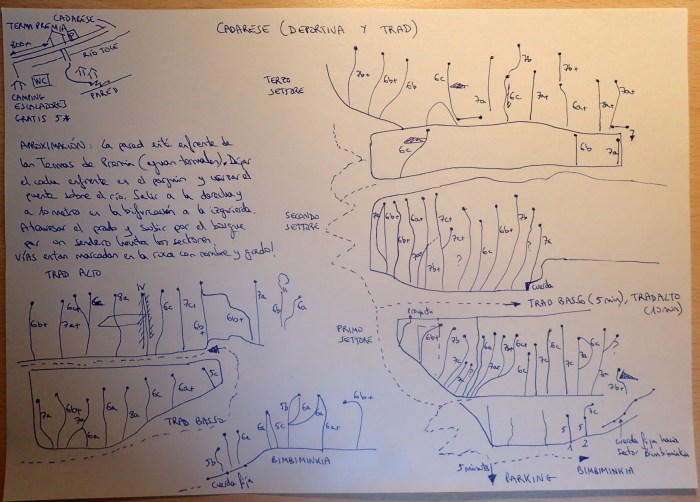 CADARESE (DEPORTIVA Y TRAD)
CADARESE
TERME PREMIA
P
800m
RÍO TOCE
WC
CAMPING
ESCALADORES
GRATIS 5*
PARED
APROXIMACIÓN: La pared está enfrente de
las Termas de Premia (aguas termales). Dejar
el coche enfrente en el parquin y cruzar el
puente sobre el río. Salir a la derecha y
a 10 metros en la bifurcación a la izquierda.
Atravesar el prado y subir por el bosque
por un sendero hasta los sectores
VÍAS están marcadas en la roca con nombre y grado!
TERZO
SETTORE
7b+ 6b+ 6b 6c 7a 7b 6c 7a+ 7b+ 6a+ 7a+ 7a+ ?
6c 6b 7a
SECONDO
SETTORE
7a 6b+ 6a+ 7c+ 7c+ ? 6c 6b+ 7b 7a
cuerda
TRAD BASSO (5 min), TRAD ALTO
(10 min)
PRIMO
SETTORE
Proyecto
6b+ 7b 6a+ 6c+ 7c 6c 6c 7a ?
7b+
5 5 7c
1 2
cuerda fija hacia
sector Bimbiminkia
5 minutos
PARKING
BIMBIMINKIA
TRAD ALTO
6b+ 6a+ 7a+ 6c 8a IV 6c 7c+ 6b+ 6b+ 7a 6b 6a
TRAD BASSO
7a 6b+ 7a 6a 6a 8a 6c 6a+ 5c
5b 6a 6c 6a 5b 5c 6a 6a 6a+ 6b+
cuerda fija
BIMBIMINKIA